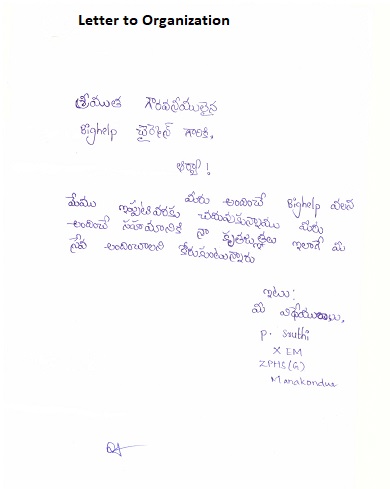 Letter to Organization
శ్రీయుత గౌరవనీయులైన
Bighelp చైర్మెన్ గారికి,
ఆర్యా !
మీరు అందించే Bighelp వలన
మేము ఇప్పటివరకు చదువుకున్నాము మీరు
అందించే సహాయానికి నా కృతజ్ఞతలు ఇలాగే మీ
సేవ అందించాలని కోరుకుంటున్నారు
ఇట్లు :
మీ విధేయురాలు,
P. Sruthi
X EM
ZPHS(G)
Manakondur